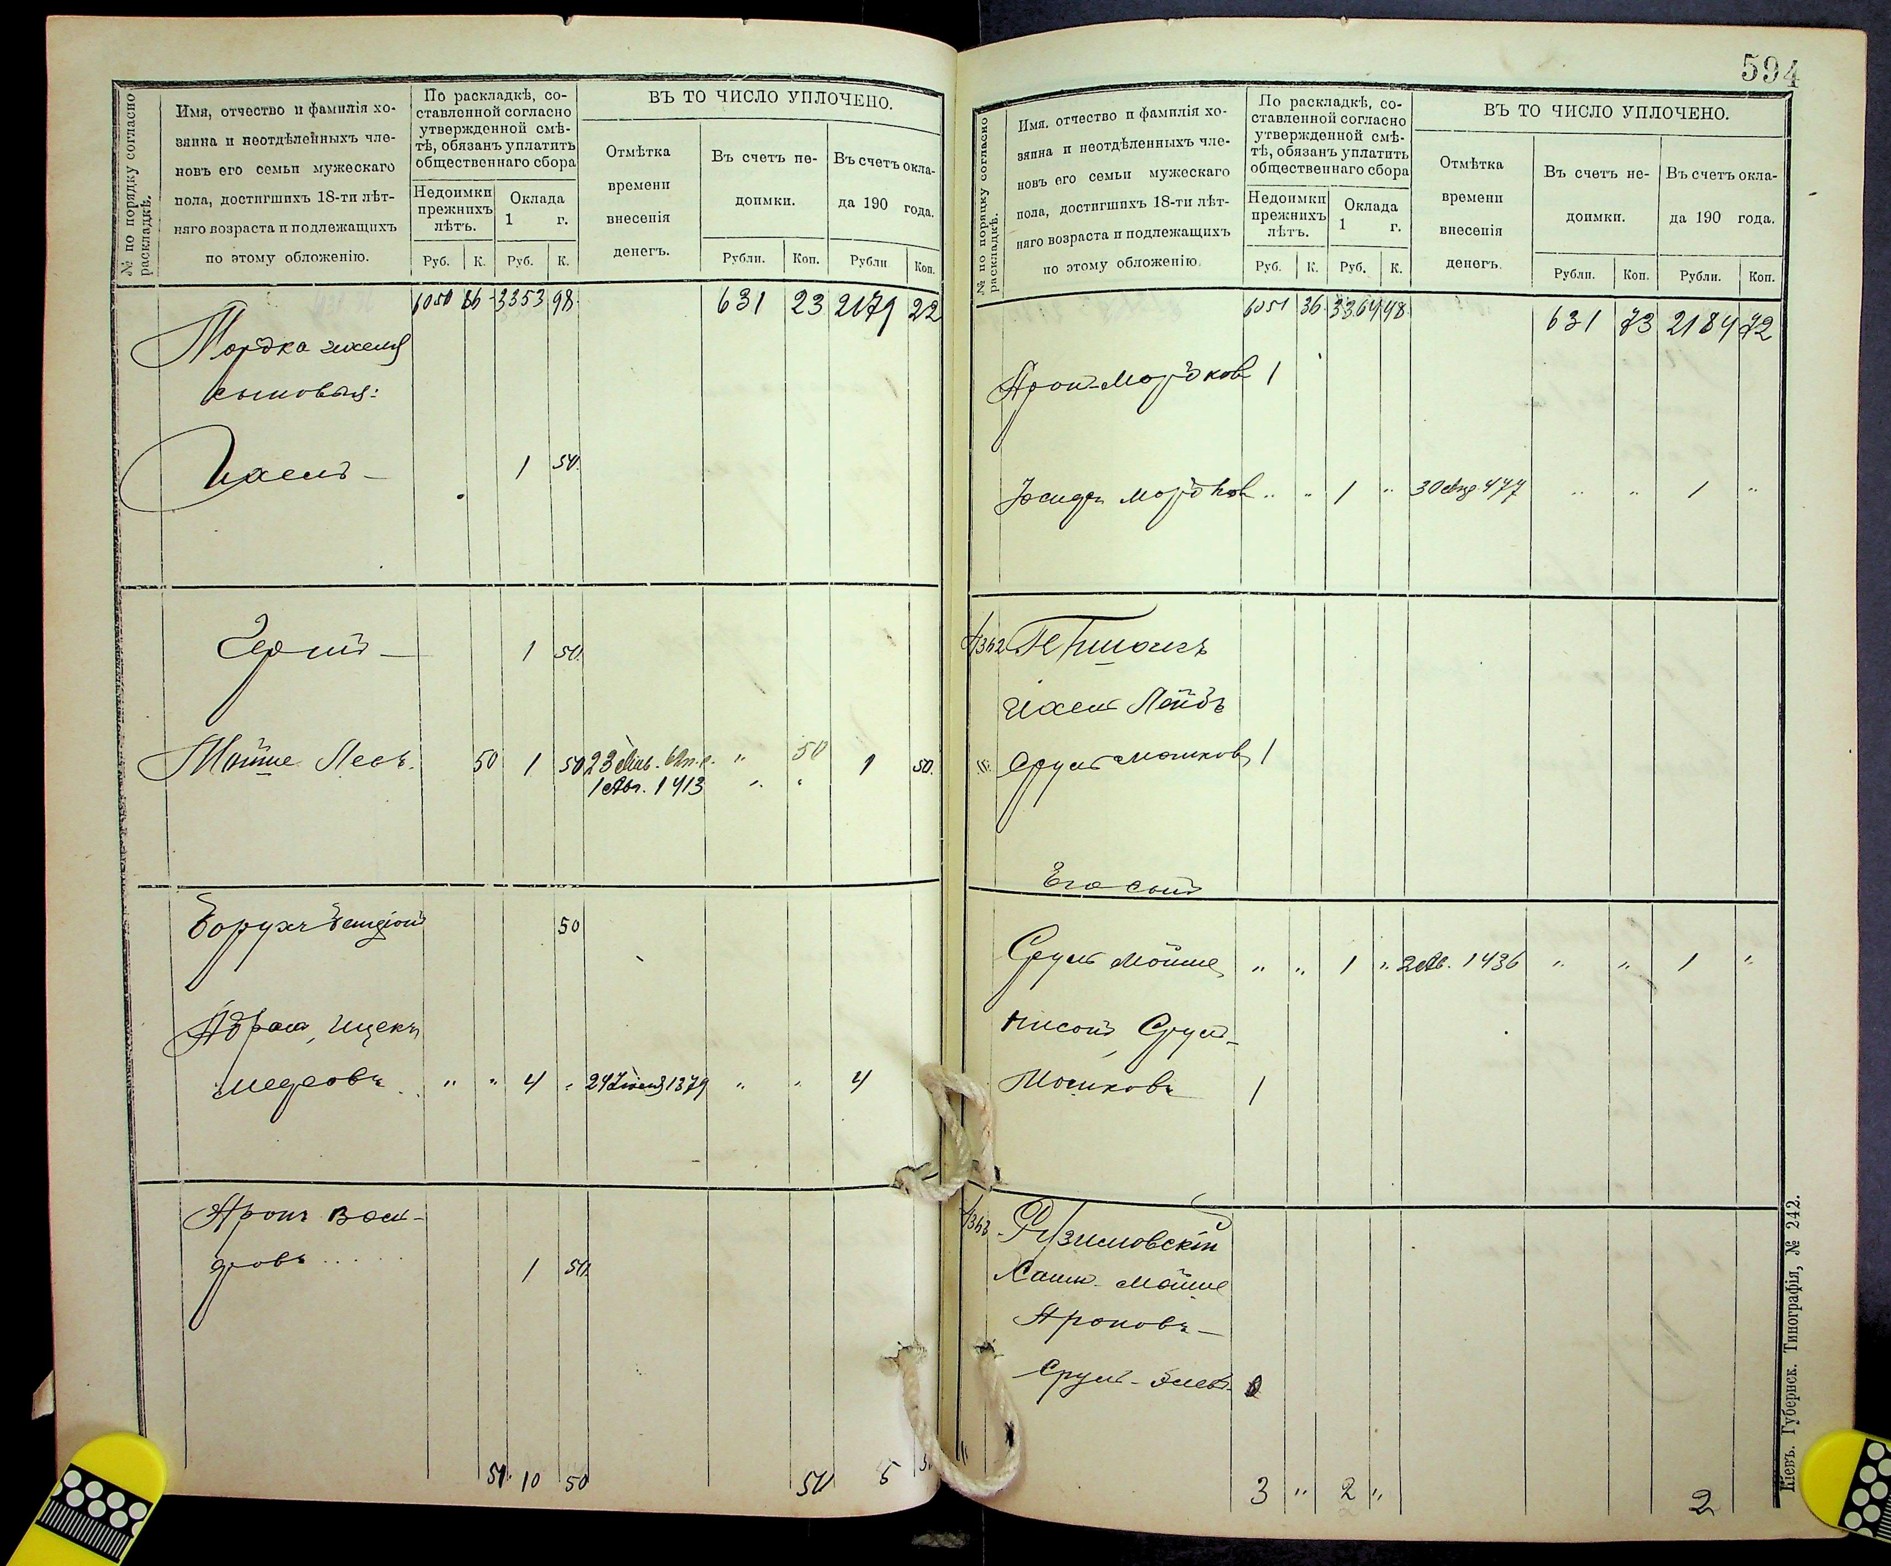 № по порядку согласно раскладкѣ.
Имя, отчество и фамилія хо-
зяина и неотдѣленныхъ чле-
новъ его семьи мужескаго
пола, достигшихъ 18-ти лѣт-
няго возраста и подлежащихъ
по этому обложенію.
По раскладкѣ, со-
ставленной согласно
утвержденной смѣ-
тѣ, обязанъ уплатить
общественнаго сбора
Недоимки
прежнихъ
лѣтъ.
Оклада
1 г.
Руб. К. Руб. К.
ВЪ ТО ЧИСЛО УПЛОЧЕНО.
Отмѣтка
времени
внесенія
денегъ.
Въ счетъ не-
доимки.
Въ счетъ окла-
да 190 года.
Рубли. Коп. Рубли Коп.
6050 86 3353 98 631 23 2179 22
Мордка
сыновья:
Ихель 1 50
1 50
Мойше 50 1 50 23 50 1 50
1 Авг. 1413 " "
Борухъ 50
Абрам, Ицекъ
" " 4 " 24 Іюня 1379 " " 4
Аронъ Вол-
фовъ 1 50
50 10 50 50 5
594
№ по порядку согласно раскладкѣ.
Имя, отчество и фамилія хо-
зяина и неотдѣленныхъ чле-
новъ его семьи мужескаго
пола, достигшихъ 18-ти лѣт-
няго возраста и подлежащихъ
по этому обложенію.
По раскладкѣ, со-
ставленной согласно
утвержденной смѣ-
тѣ, обязанъ уплатить
общественнаго сбора
Недоимки
прежнихъ
лѣтъ.
Оклада
1 г.
Руб. К. Руб. К.
ВЪ ТО ЧИСЛО УПЛОЧЕНО.
Отмѣтка
времени
внесенія
денегъ.
Въ счетъ не-
доимки.
Въ счетъ окла-
да 190 года.
Рубли. Коп. Рубли. Коп.
6051 36 3364 48 631 73 2184 72
Арон Мордков 1
Іосиф Мордков " " 1 " 30 477 " " 1 "
1362
Ихель Лейбъ
Сруль Мошков 1
Его сынъ
Сруль Мойше " " 1 " 2 Ав. 1436 " " 1 "
Нисонъ, Сруль
Мошковъ 1
1363
Хаим Мойше
Ароновъ
Сруль
3 " 2 " 2
Кіевъ. Губернск. Типографія, № 242.